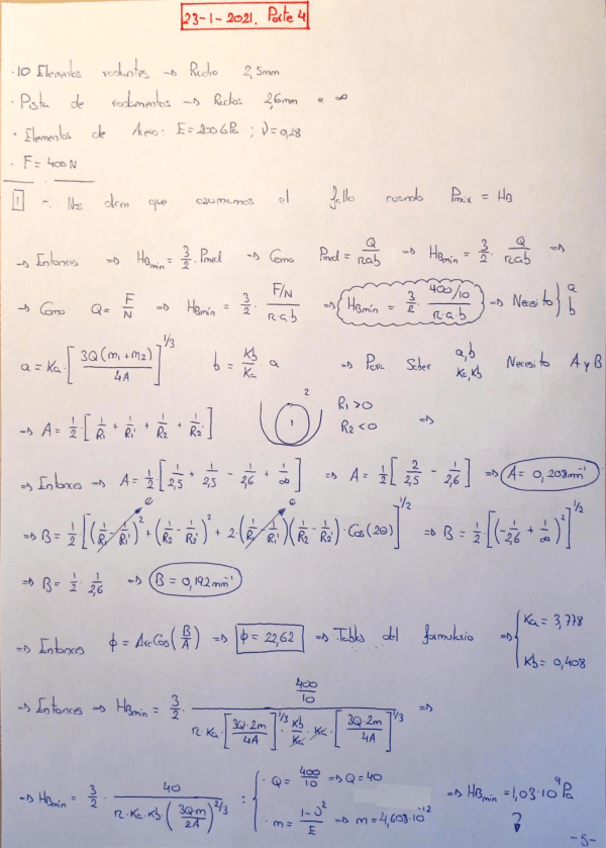 23-1-2021. Parte 4
· 10 Elementos rodantes → Radio 2,5mm
· Pista de rodamientos → Radios 2,6mm e ∞
· Elementos de Acero: E = 200 GPa ; ν = 0,28
· F = 400 N
1 -. Nos dicen que asumamos el fallo cuando Pmáx = HB
→ Entonces ⇒ HBmin = 3/2 · Pmed → Como Pmed = Q/πab → HBmin = 3/2 · Q/πab ⇒
→ Como Q = F/N ⇒ HBmin = 3/2 · (F/N)/(π·a·b) ⇒ HBmin = 3/2 · (400/10)/(π·a·b) ⇒ Necesito } a b
a = Ka·[3Q(m1+m2)/4A]^1/3 b = Kb/Ka · a ⇒ Para Saber a,b Ka,Kb Necesito A y B
→ A = 1/2·[1/R1 + 1/R1' + 1/R2 + 1/R2'] 1 2 R1 > 0 R2 < 0 ⇒
⇒ Entonces → A = 1/2·[1/2,5 + 1/2,5 - 1/2,6 + 1/∞] ⇒ A = 1/2[2/2,5 - 1/2,6] ⇒ A = 0,208mm⁻¹
⇒ B = 1/2[(1/R1 - 1/R1')² + (1/R2 - 1/R2')² + 2·(1/R1 - 1/R1')(1/R2 - 1/R2')·Cos(2θ)]^1/2 ⇒ B = 1/2·[(-1/2,6 + 1/∞)²]^1/2
⇒ B = 1/2 · 1/2,6 ⇒ B = 0,192mm⁻¹
⇒ Entonces ϕ = ArcCos(B/A) ⇒ ϕ = 22,62 ⇒ Tablas del formulario ⇒ { Ka = 3,778 Kb = 0,408
→ Entonces → HBmin = 3/2 · (400/10)/(π·Ka·[3Q·2m/4A]^1/3 · Kb/Ka · Ka·[3Q·2m/4A]^1/3) ⇒
→ HBmin = 3/2 · 40/(π·Ka·Kb·(3Q·m/2A)^2/3) : { · Q = 400/10 ⇒ Q = 40 · m = 1-ν²/E ⇒ m = 4,608·10⁻¹² ⇒ HBmin = 1,03·10⁹ Pa
?
-5-